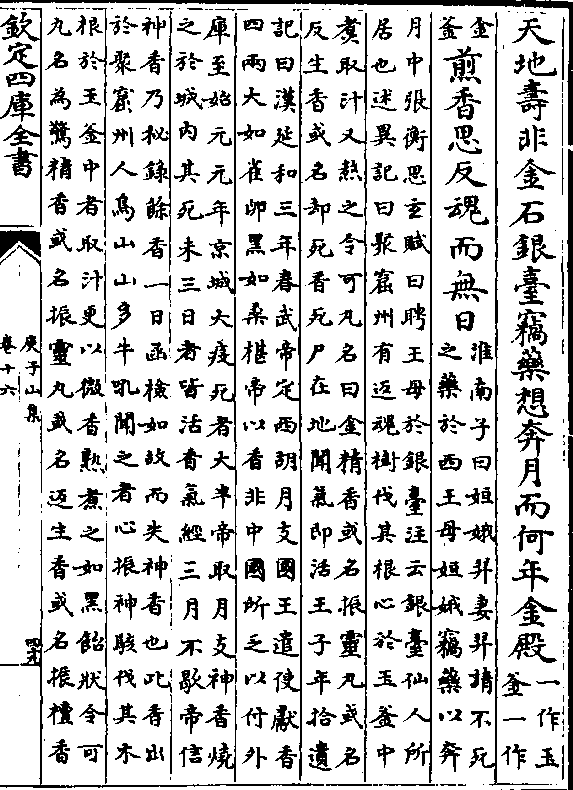 天地壽非金石銀臺竊藥想奔月而何年金殿
一作玉
釜一作
金
釜
煎香思反魂而無日
淮南子曰姮娥羿妻羿請不死
之藥於西王母姮娥竊藥以奔
月中張衡思玄賦曰聘王母於銀臺注云銀臺仙人所
居也述異記曰聚窟州有返魂樹伐其根心於玉釜中
煑取汁又熬之令可丸名曰金精香或名振靈丸或名
反生香或名却死香死尸在地聞氣即活王子年拾遺
記曰漢延和三年春武帝定西胡月支國王遣使獻香
四兩大如雀卵黑如桑椹帝以香非中國所乏以付外
庫至始元元年京城大疫死者大半帝取月支神香燒
之於城内其死未三日者皆活香氣經三月不歇帝信
神香乃秘錄餘香一日函檢如故而失神香也此香出
於聚窟州人鳥山山多牛吼聞之者心振神駭伐其木
根於玉釜中者取汁更以微香熟煮之如黑飴狀令可
丸名為驚精香或名振靈丸或名返生香或名振檀香
欽定四庫全書
庾子山集
卷十六
四十九